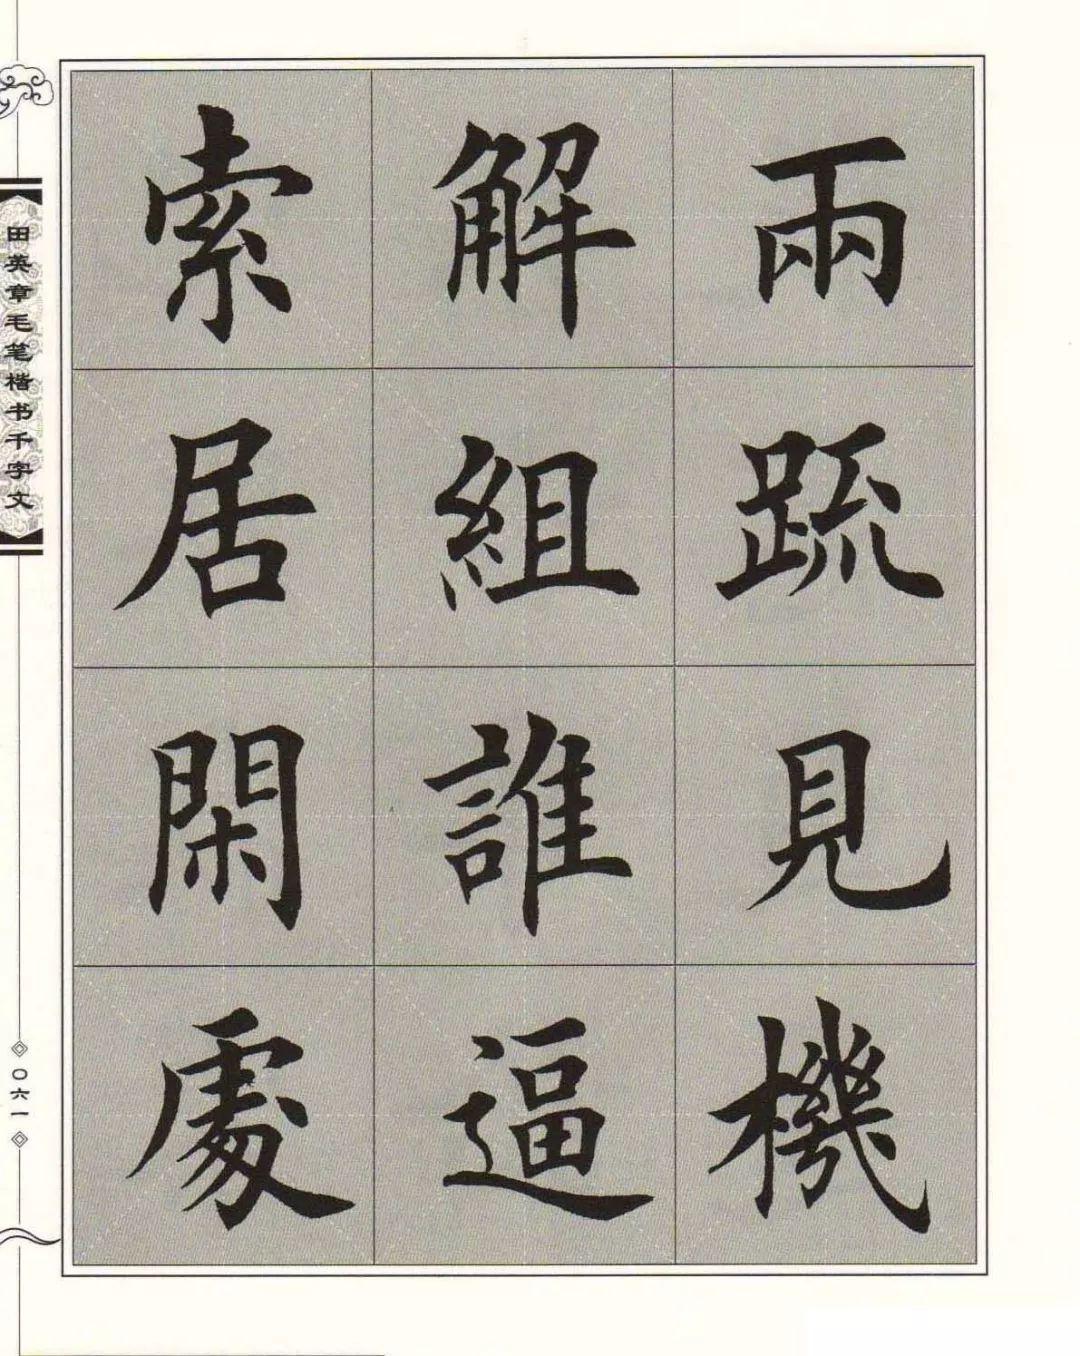 兩疏見機
解組誰逼
索居閑處
田英章毛笔楷书千字文
〇六一